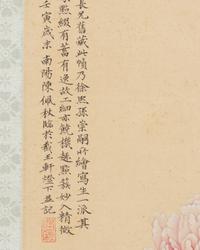 長兄舊藏此幀乃徐熙孫崇嗣所繪寫生一派其
點綴有蓄有逸故工細亦饒撲趣點簇妙入精微
壬寅歲末南陽陳佩秋臨於截玉軒燈下并記